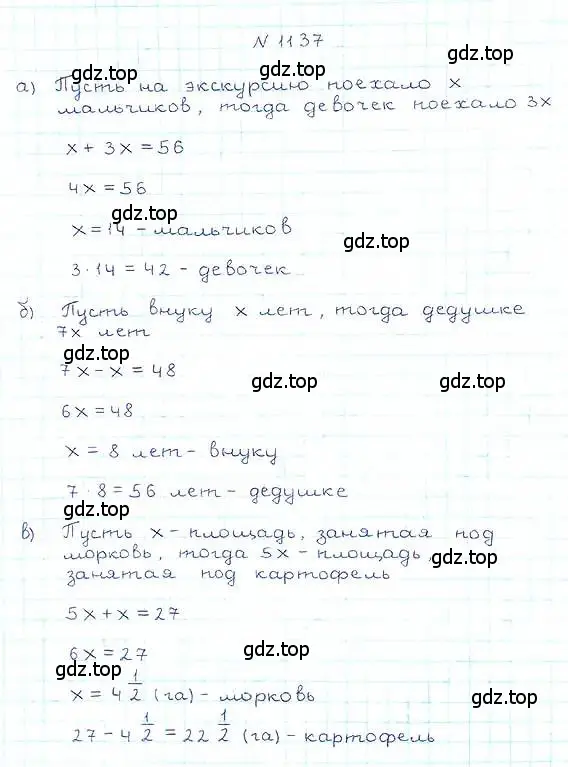 N 1137
gdz.top gdz.top
а) Пусть на экскурсию поехало x
мальчиков, тогда девочек поехало 3x
x + 3x = 56
4x = 56
gdz.top
x = 14 - мальчиков
gdz.top
3 · 14 = 42 - девочек
б) Пусть внуку x лет, тогда дедушке
7x лет
gdz.top
7x - x = 48
gdz.top gdz.top
6x = 48
x = 8 лет - внуку
7 · 8 = 56 лет - дедушке
gdz.top
в) Пусть x - площадь, занятая под
морковь, тогда 5x - площадь,
gdz.top
занятая под картофель
5x + x = 27
6x = 27
gdz.top
gdz.top
x = 4 1/2 (га) - морковь
gdz.top
27 - 4 1/2 = 22 1/2 (га) - картофель